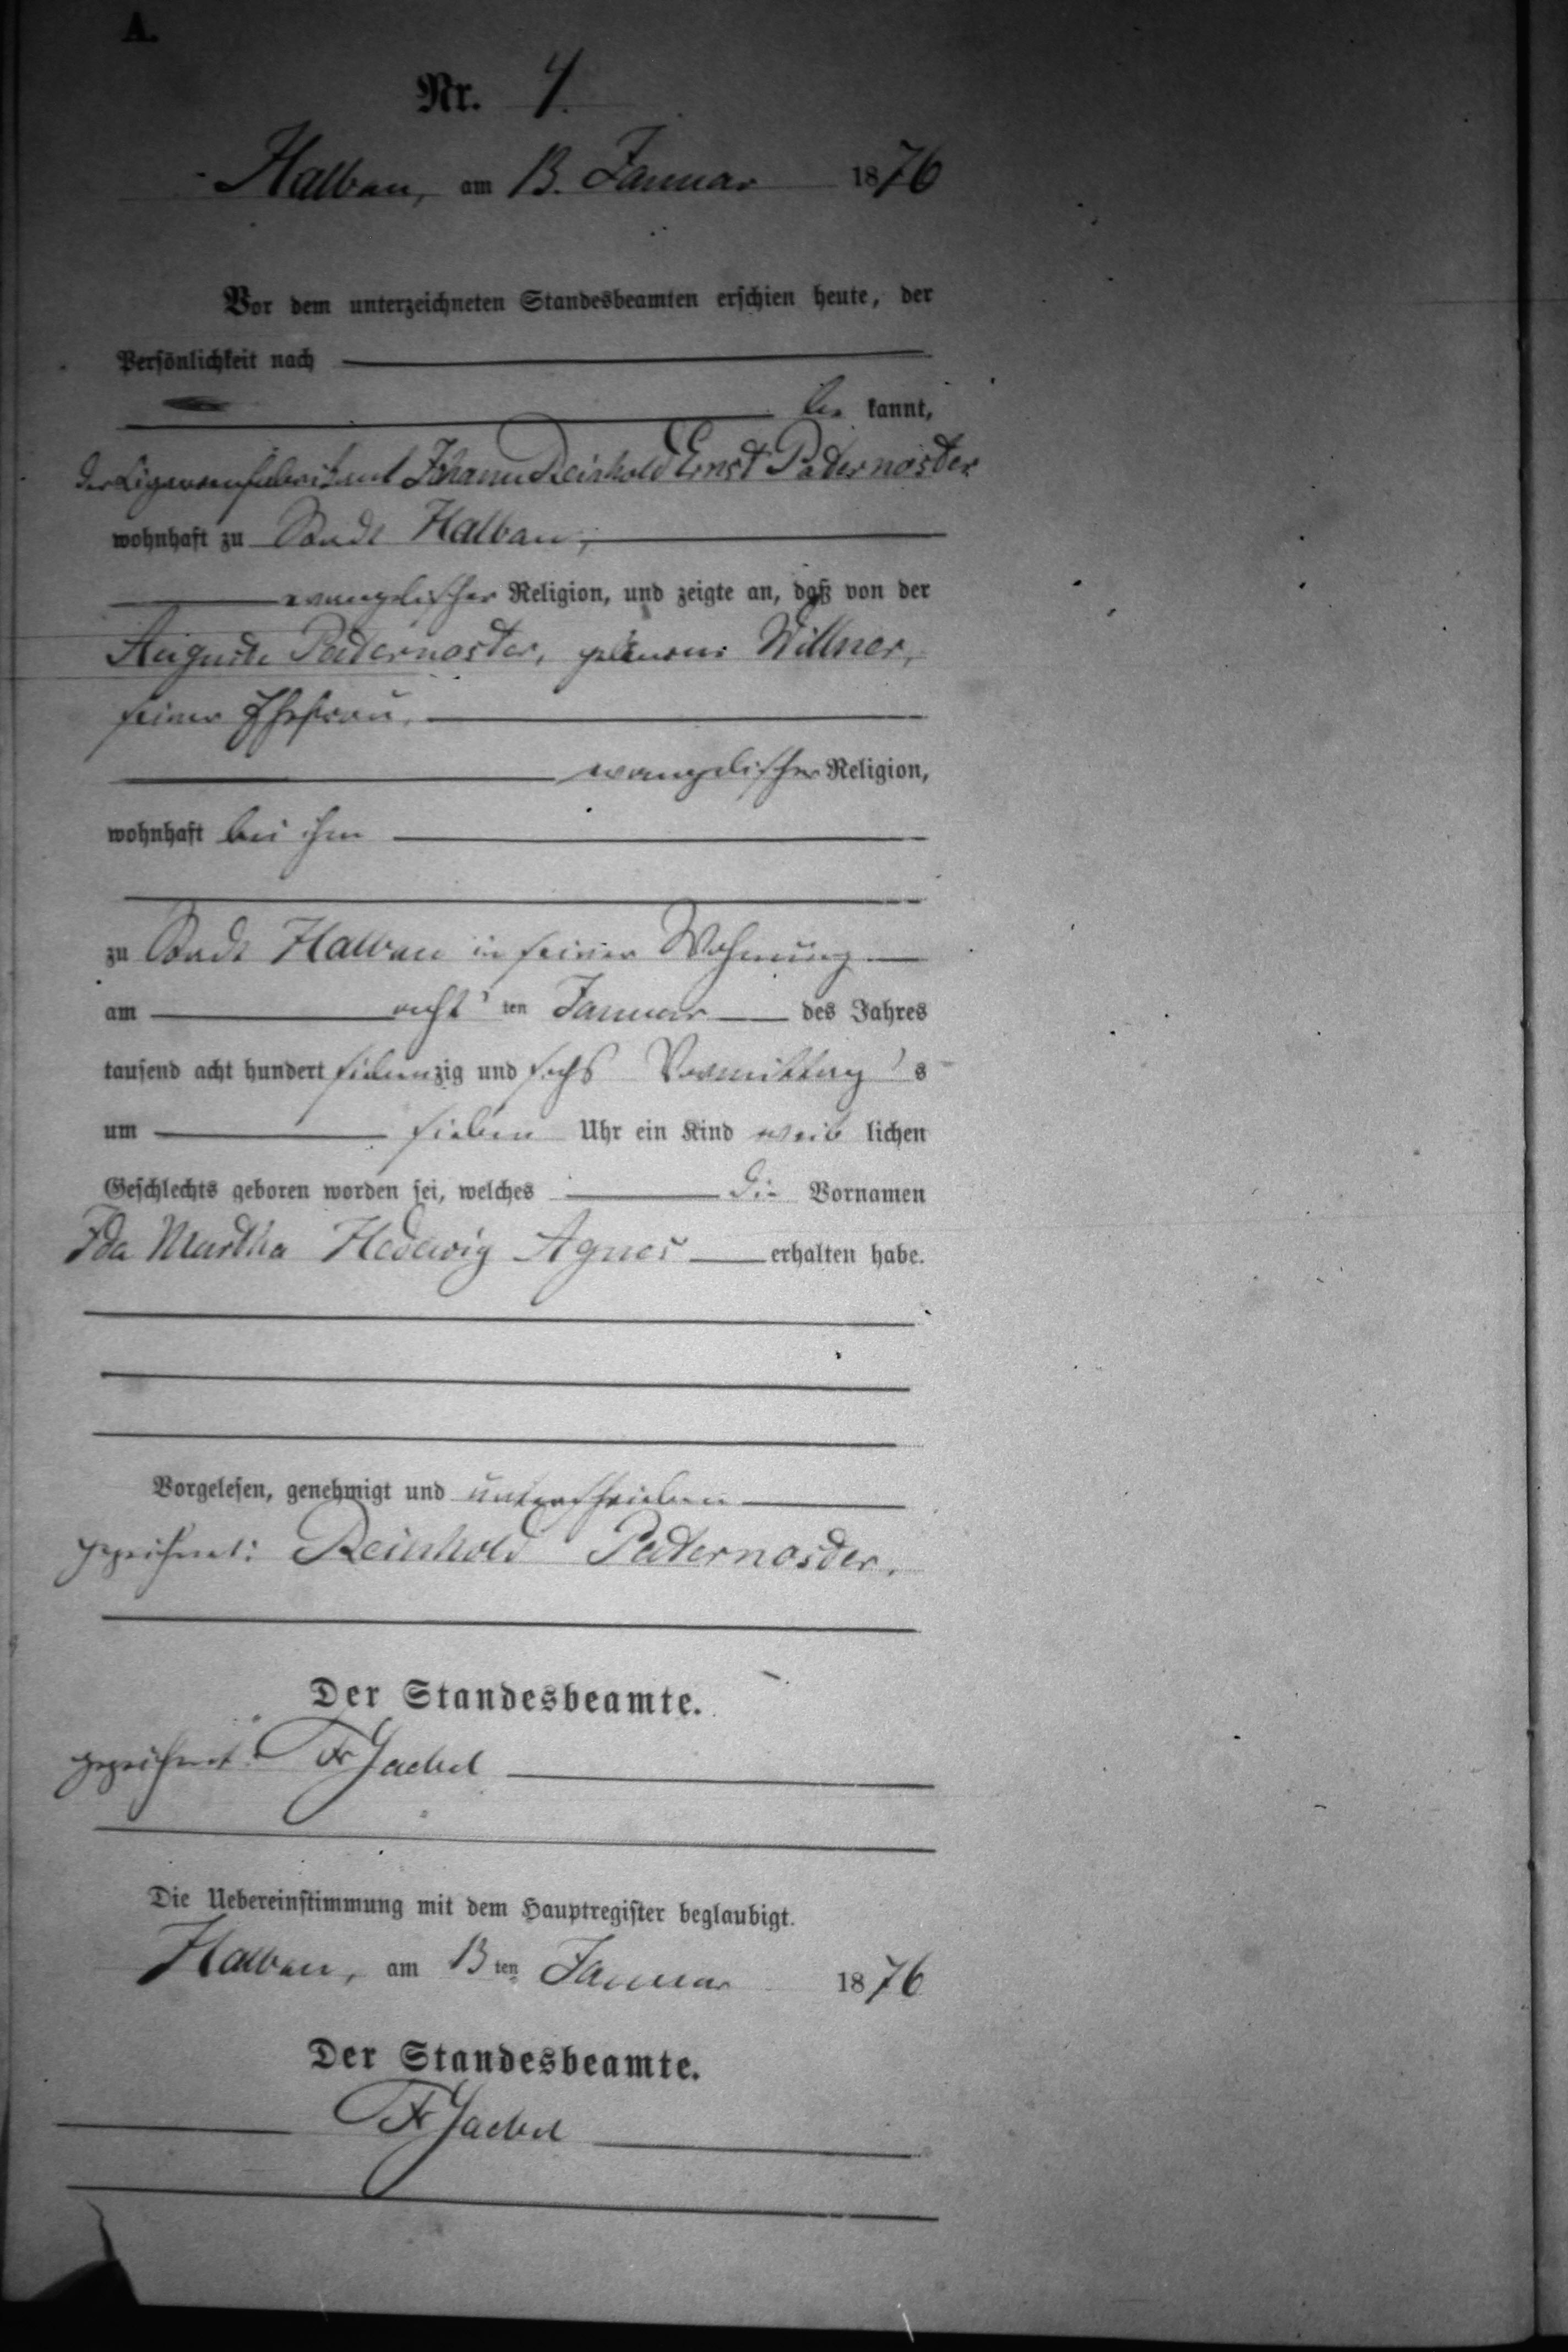 A.
Nr. 4.
Halbau, am 13. Januar 1876
Vor dem unterzeichneten Standesbeamten erschien heute, der
Persönlichkeit nach
be kannt,
der Cigarrenfabrikant Johann Reinhold Ernst Paternoster
wohnhaft zu Stadt Halbau,
evangelischer Religion, und zeigte an, daß von der
Auguste Paternoster, geborene Willner,
seiner Ehefrau,
evangelischer Religion,
wohnhaft bei ihm
zu Stadt Halbau in seiner Wohnung
am acht ten Januar des Jahres
tausend acht hundert siebenzig und sechs Vormittag s
um sieben Uhr ein Kind weib lichen
Geschlechts geboren worden sei, welches die Vornamen
Ida Martha Hedewig Agnes erhalten habe.
Vorgelesen, genehmigt und unterschrieben
gezeichnet: Reinhold Paternoster.
Der Standesbeamte.
gezeichnet: Fr Jaekel
Die Uebereinstimmung mit dem Hauptregister beglaubigt.
Halbau, am 13 ten Januar 1876
Der Standesbeamte.
Fr Jaekel